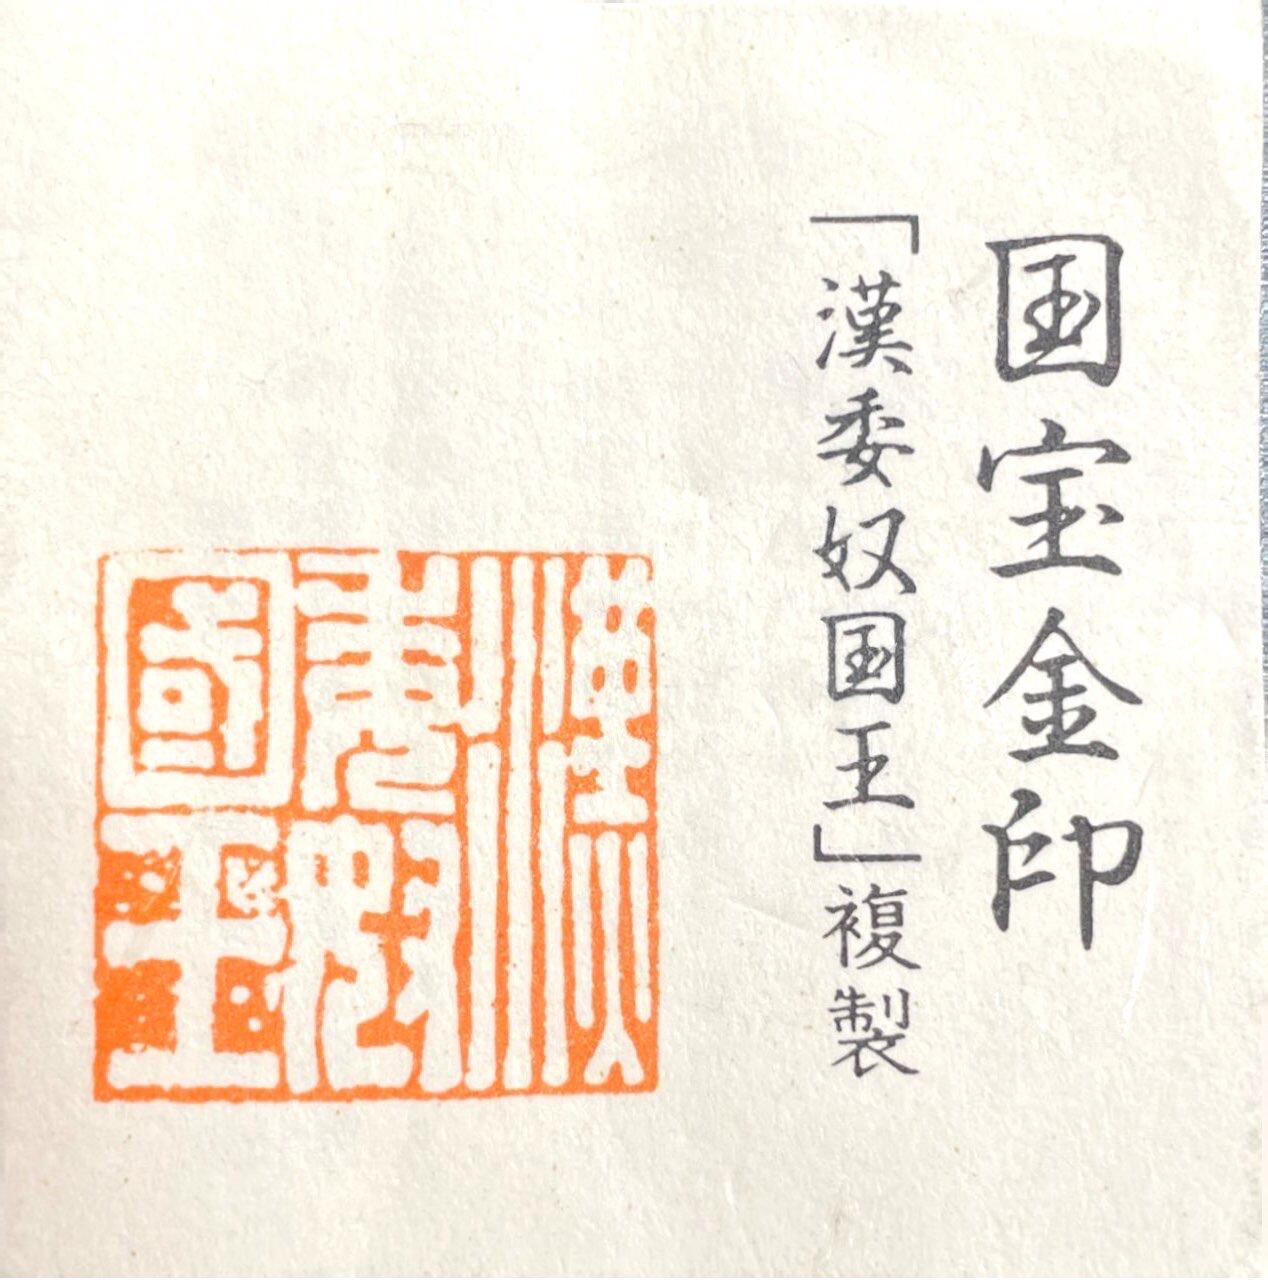 国宝金印
「漢委奴国王」複製
漢
委奴
國王